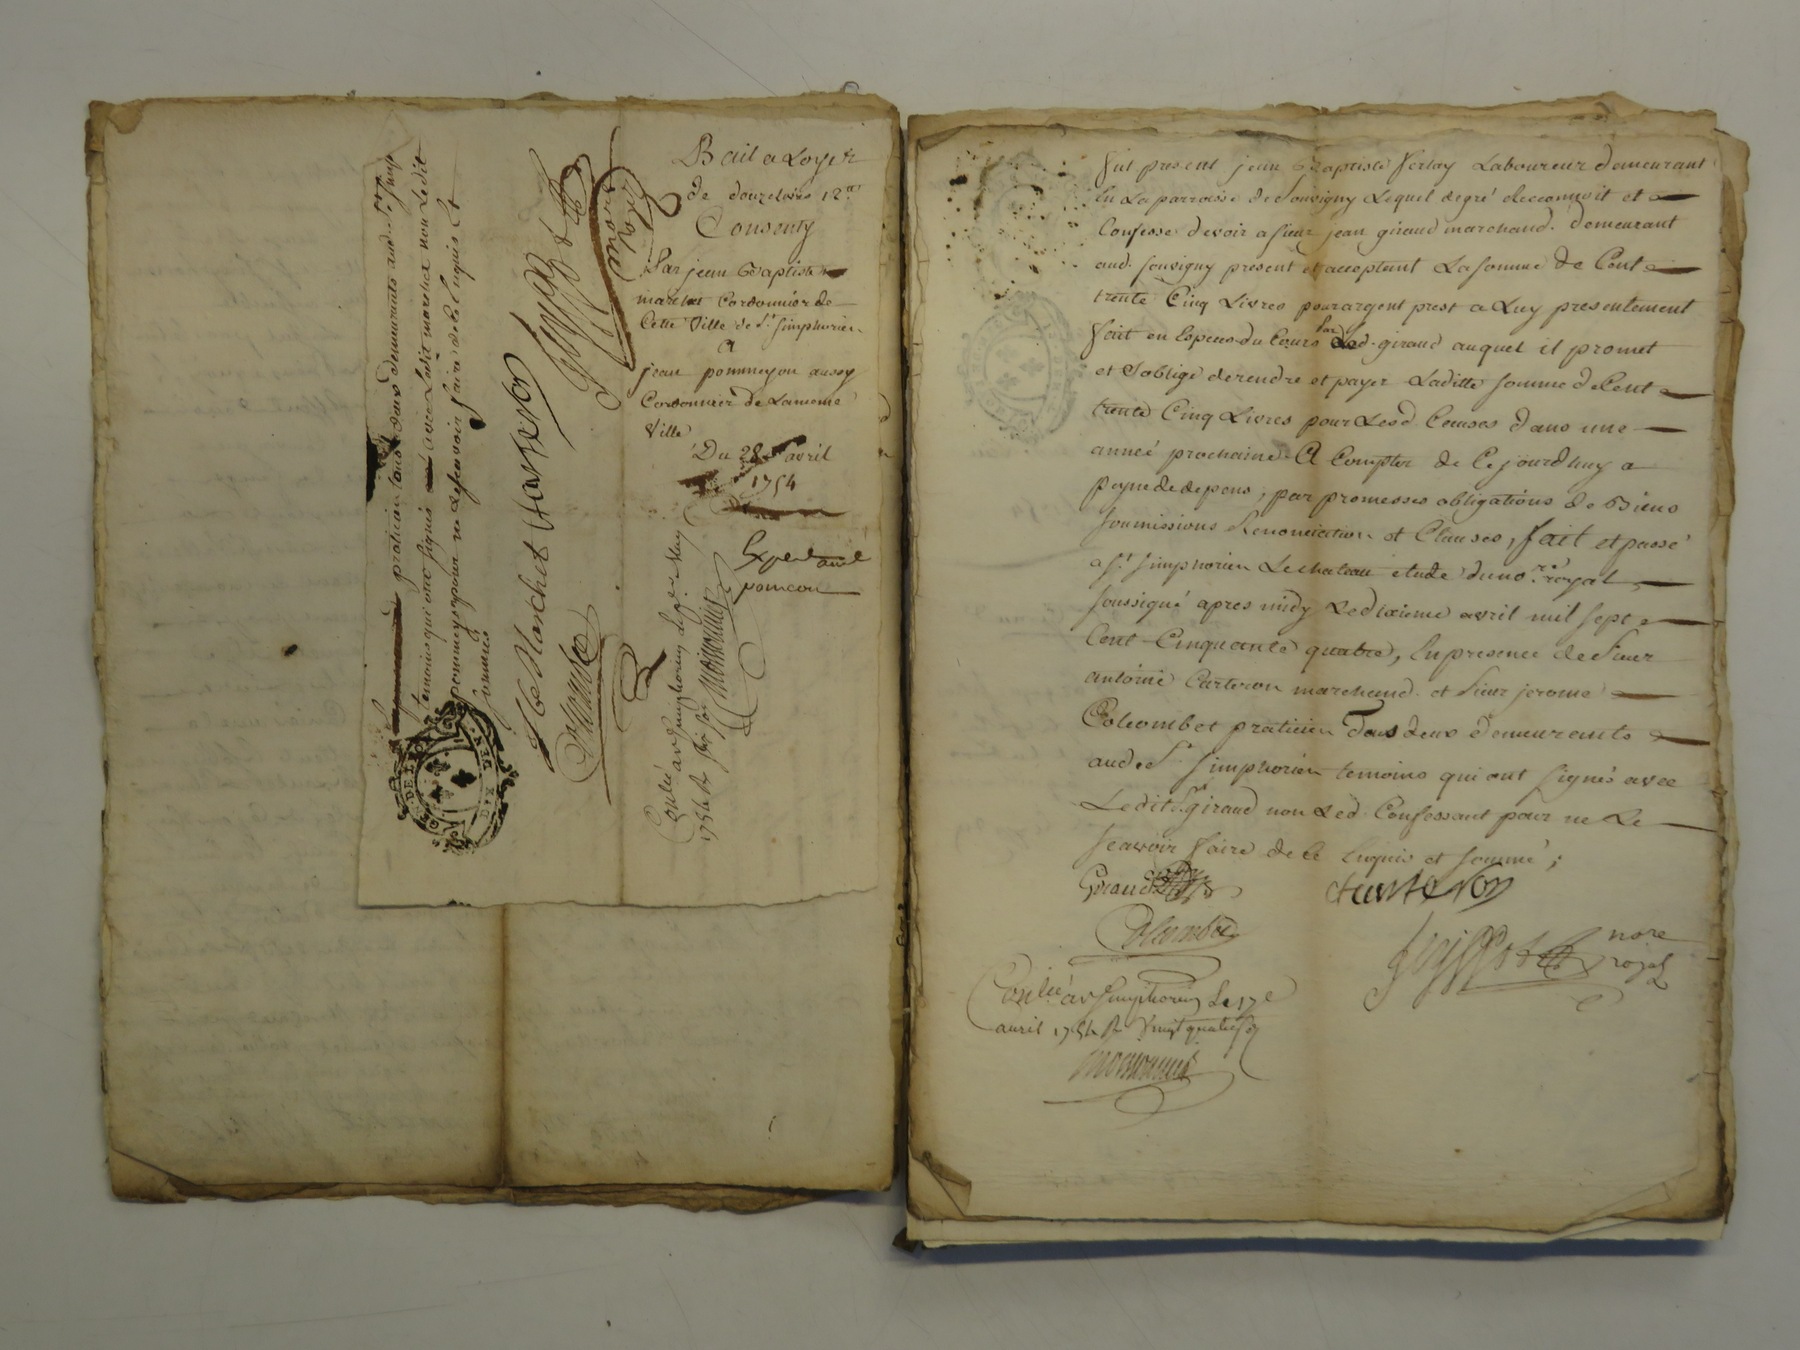 pratician tous deux demeurants aud. St. simp.
temoins qui ont signés avec Ledit marchet non Ledit
pommeyon pour ne Le scavoir faire de ce Enquis Et
sommés
J B Marchet Carteron
Colombet
notaire
royal
DE LYON
DIX DEN.
Bail a Loyer
de douze livres 12.tt
Consenty
Par jean Baptiste
marchet Cordonnier de
Cette Ville de St. simphorien
A
jean pommeyon aussy
Cordonnier de La meme
Ville
Du 28e avril
1754
Expedané
pommeon
Conlée a St simphorien Le
1754
fut present jean Baptiste ferlay Laboureur demeurant
En La parroisse de Souvigny Lequel de gré Reconnoit et
Confesse devoir a sieur jean giraud marchand. demeurant
aud. souvigny present et acceptant La somme de Cent
trente Cinq Livres pour argent prest a Luy presentement
fait en Especes du Cours par Led. giraud auquel il promet
et s'oblige de rendre et payer Laditte somme de Cent
trente Cinq Livres pour Lesd. Causes dans une
anneé prochaine A Compter de Cejourdhuy a
peyne de depens, par promesses obligations de Biens
soumissions Renonciation et Clauses, fait et passé
a St. simphorien Le chateau etude du no.re royal
soussigné apres midy Le dixieme avril mil sept
Cent Cinquante quatre, En presence de sieur
antoine Carteron marchand. et sieur jerome
Colombet praticien Tous deux demeurants
aud. St. simphorien temoins qui ont signés avec
Ledit Sr. giraud non Led. Confessant pour ne Le
scavoir faire de Ce Enquis et sommé;
Giraud Carteron
Colombet
nore
royal
Conlée a St simphorien Le 17e
avril 1754 Rx Vingt quatre sols